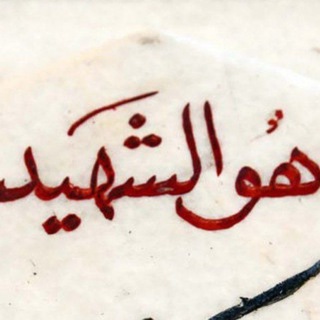 هُو الشهيد